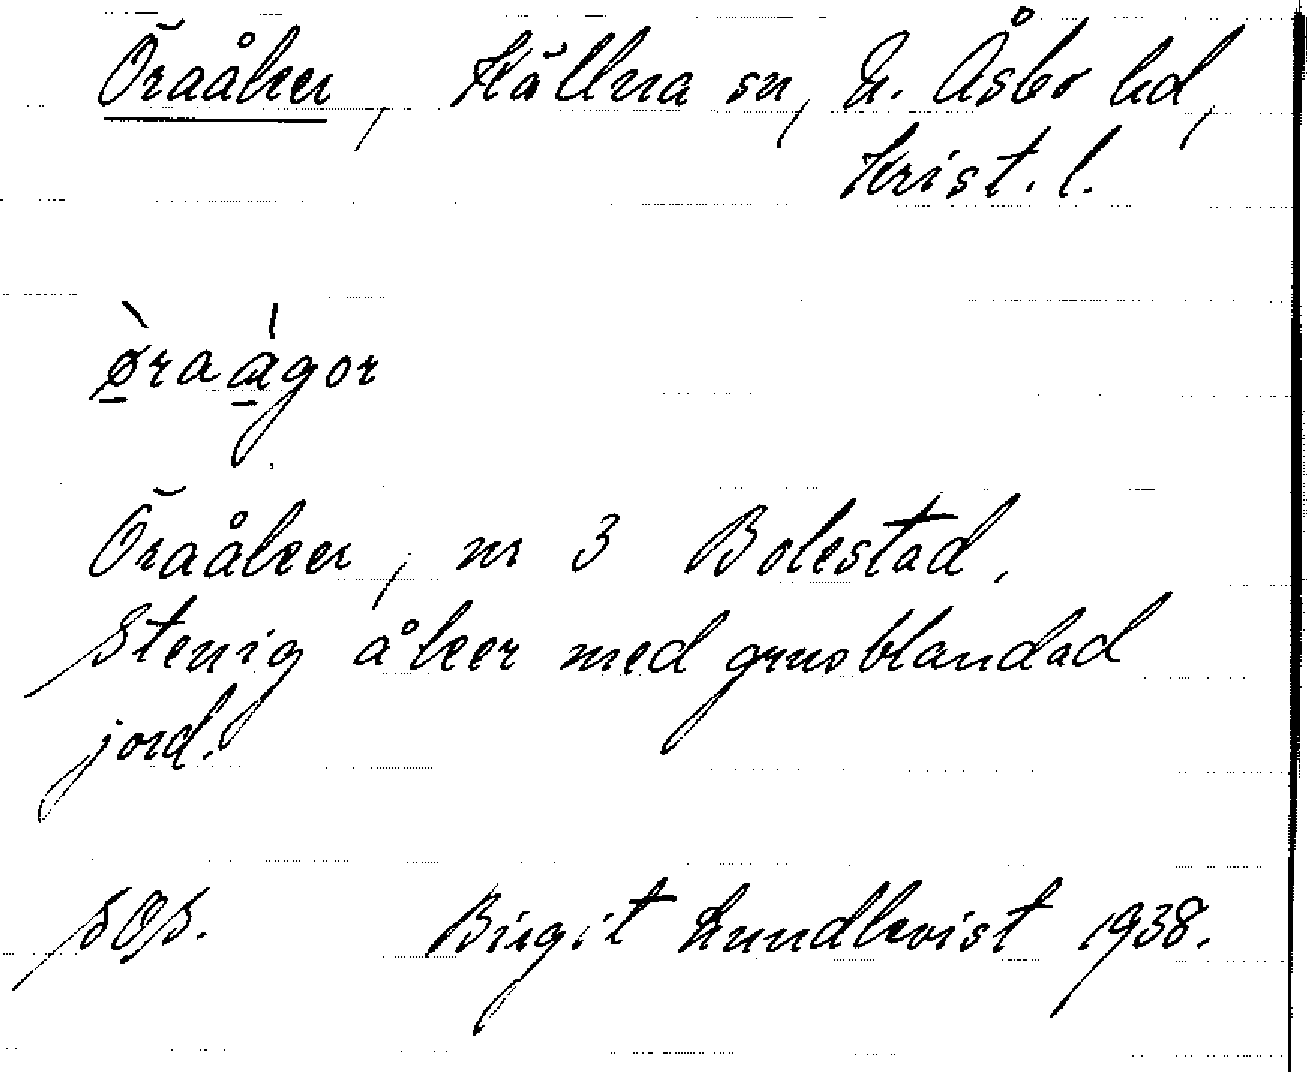 Öraåker, Källna sn, N. Åsbo hd,
Krist. l.
øraågor
Öraåker, nr 3 Bolestad.
Stenig åker med grusblandad
jord.
SOS. Birgit Lundkvist 1938.